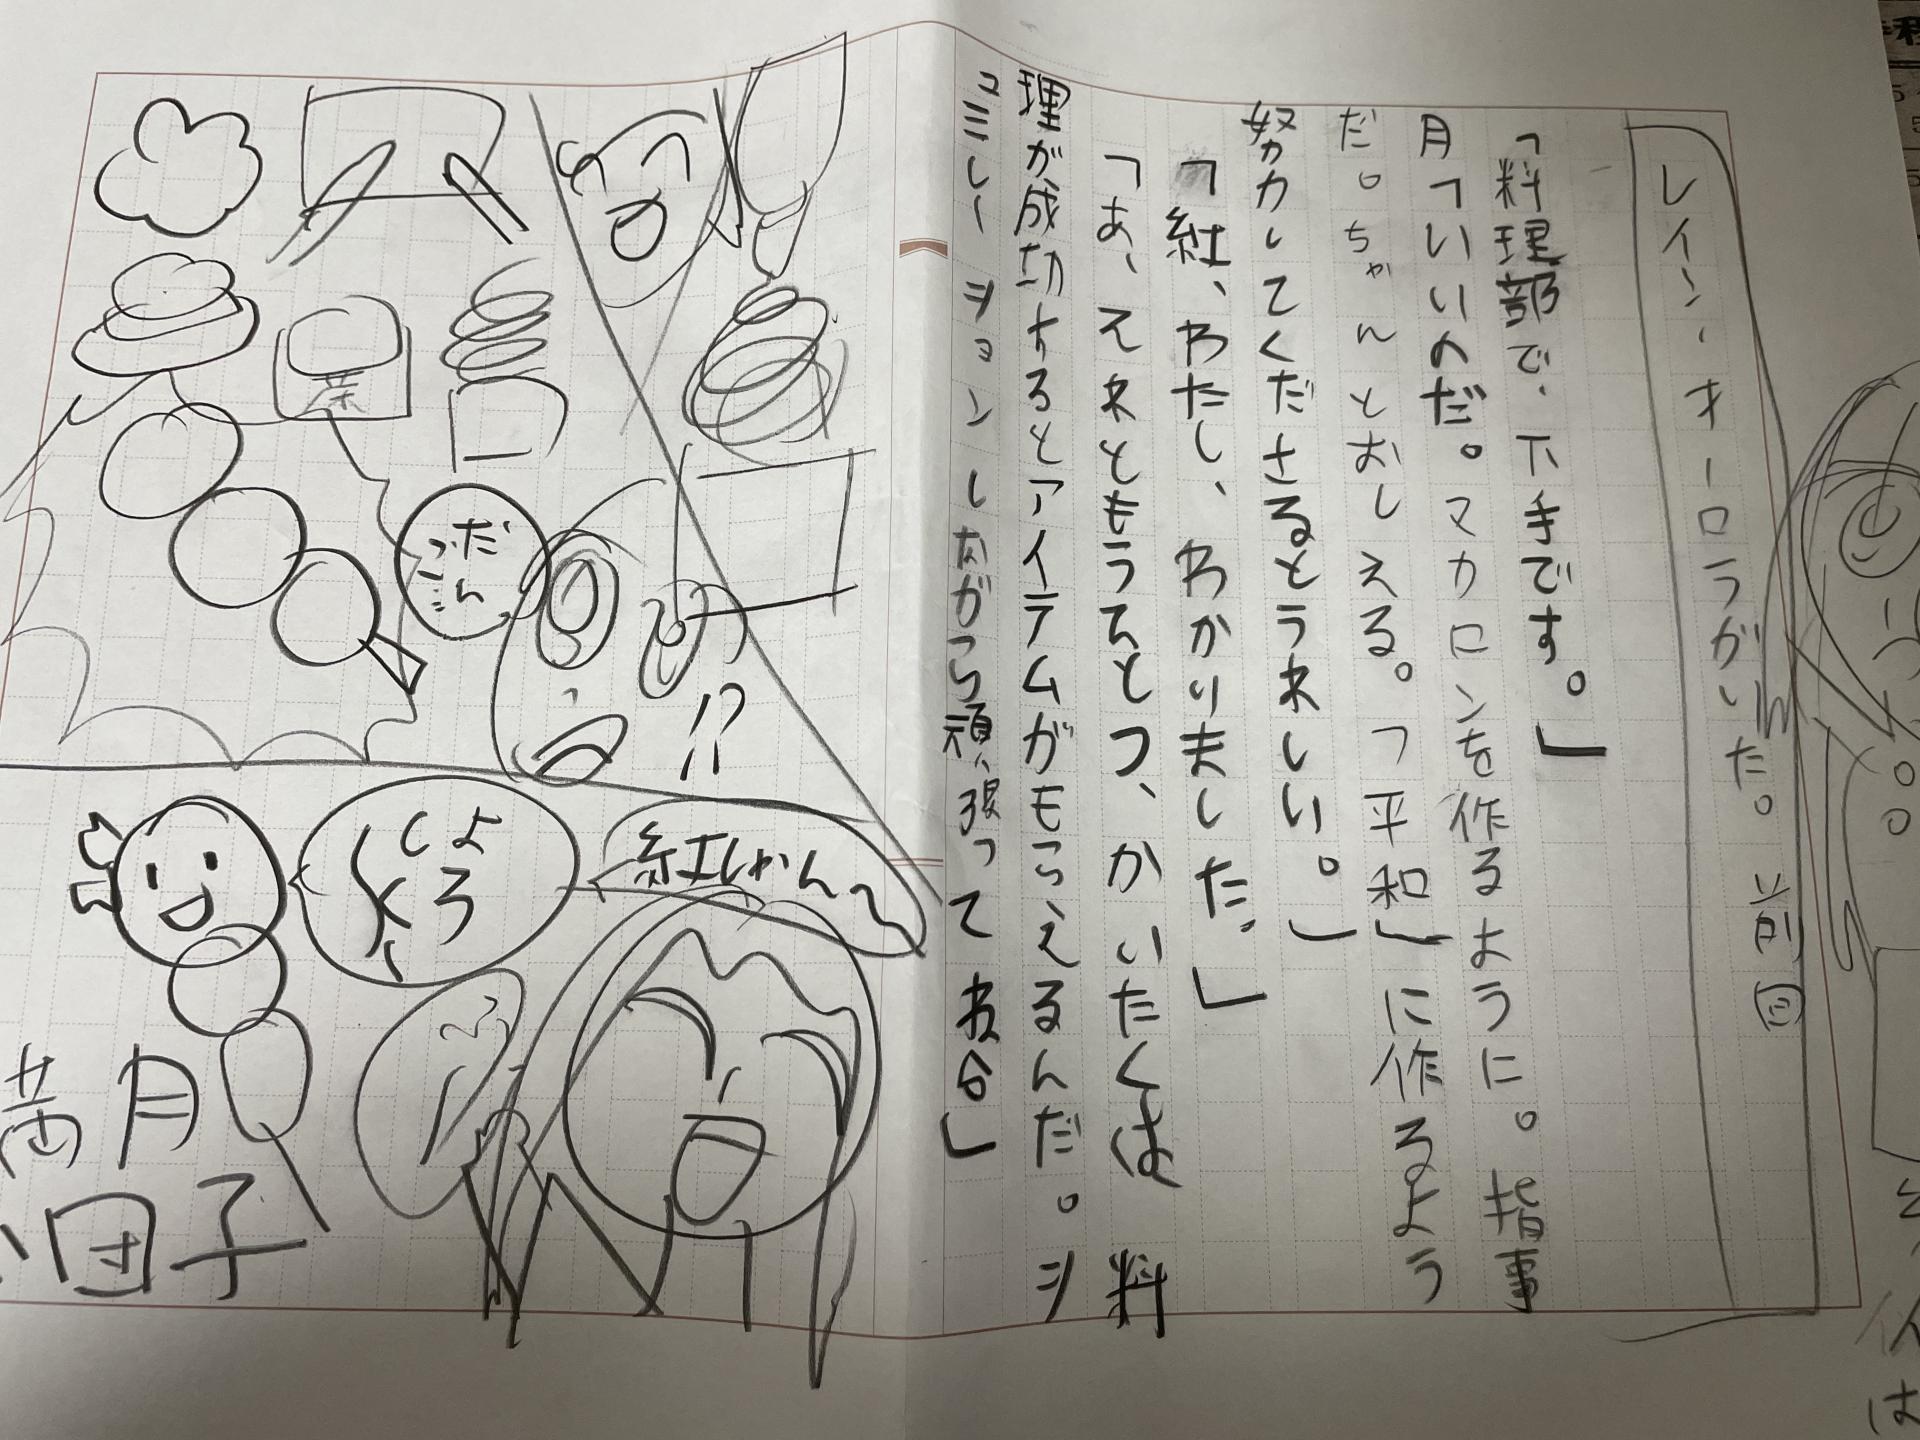 レイン・オーロラがいた。前回
「料理部で、下手です。」
月「いいのだ。マカロンを作るように。指事
だ。ちゃんとおしえる。「平和」に作るよう
努力してくださるとうれしい。」
「紅、わたし、わかりました。」
「あ、それともうひとつ、かいたくは料
理が成功するとアイテムがもらえるんだ。シ
コミレーションしながら頑張ってね台」
だんご
!?
紅しゃん〜
よろしく、
満月
団子
は